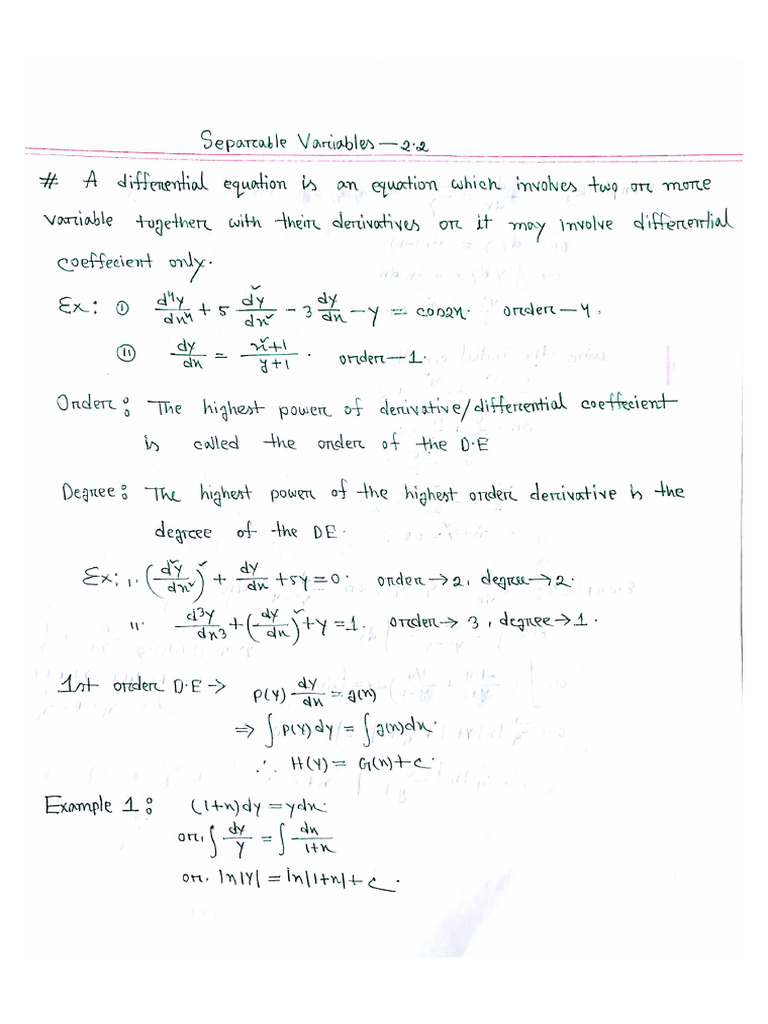 Separable Variables — 2.2
# A differential equation is an equation which involves two or more
variable together with their derivatives or it may involve differential
coeffecient only.
Ex: (i) d⁴y/dx⁴ + 5 d²y/dx² - 3 dy/dx - y = cos2x. order — 4.
(ii) dy/dx = x²+1/y+1 . order — 1.
Order: The highest power of derivative/differential coeffecient
is called the order of the D.E
Degree: The highest power of the highest order derivative is the
degree of the DE.
Ex: i. (d²y/dx²)² + dy/dx + 5y = 0. order → 2, degree → 2.
ii. d³y/dx³ + (dy/dx)² + y = 1. order → 3, degree → 1.
1st order D.E → P(y) dy/dx = g(x)
⇒ ∫ P(y)dy = ∫ g(x)dx.
∴ H(y) = G(x) + c.
Example 1: (1+x)dy = ydx.
or, ∫ dy/y = ∫ dx/1+x
or, ln|y| = ln|1+x| + c.